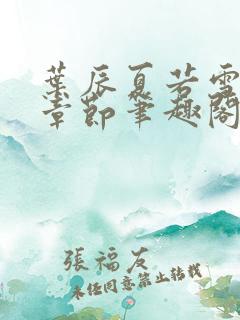 葉辰夏若雪
章節筆趣閣
張福友
未經同意禁止轉載